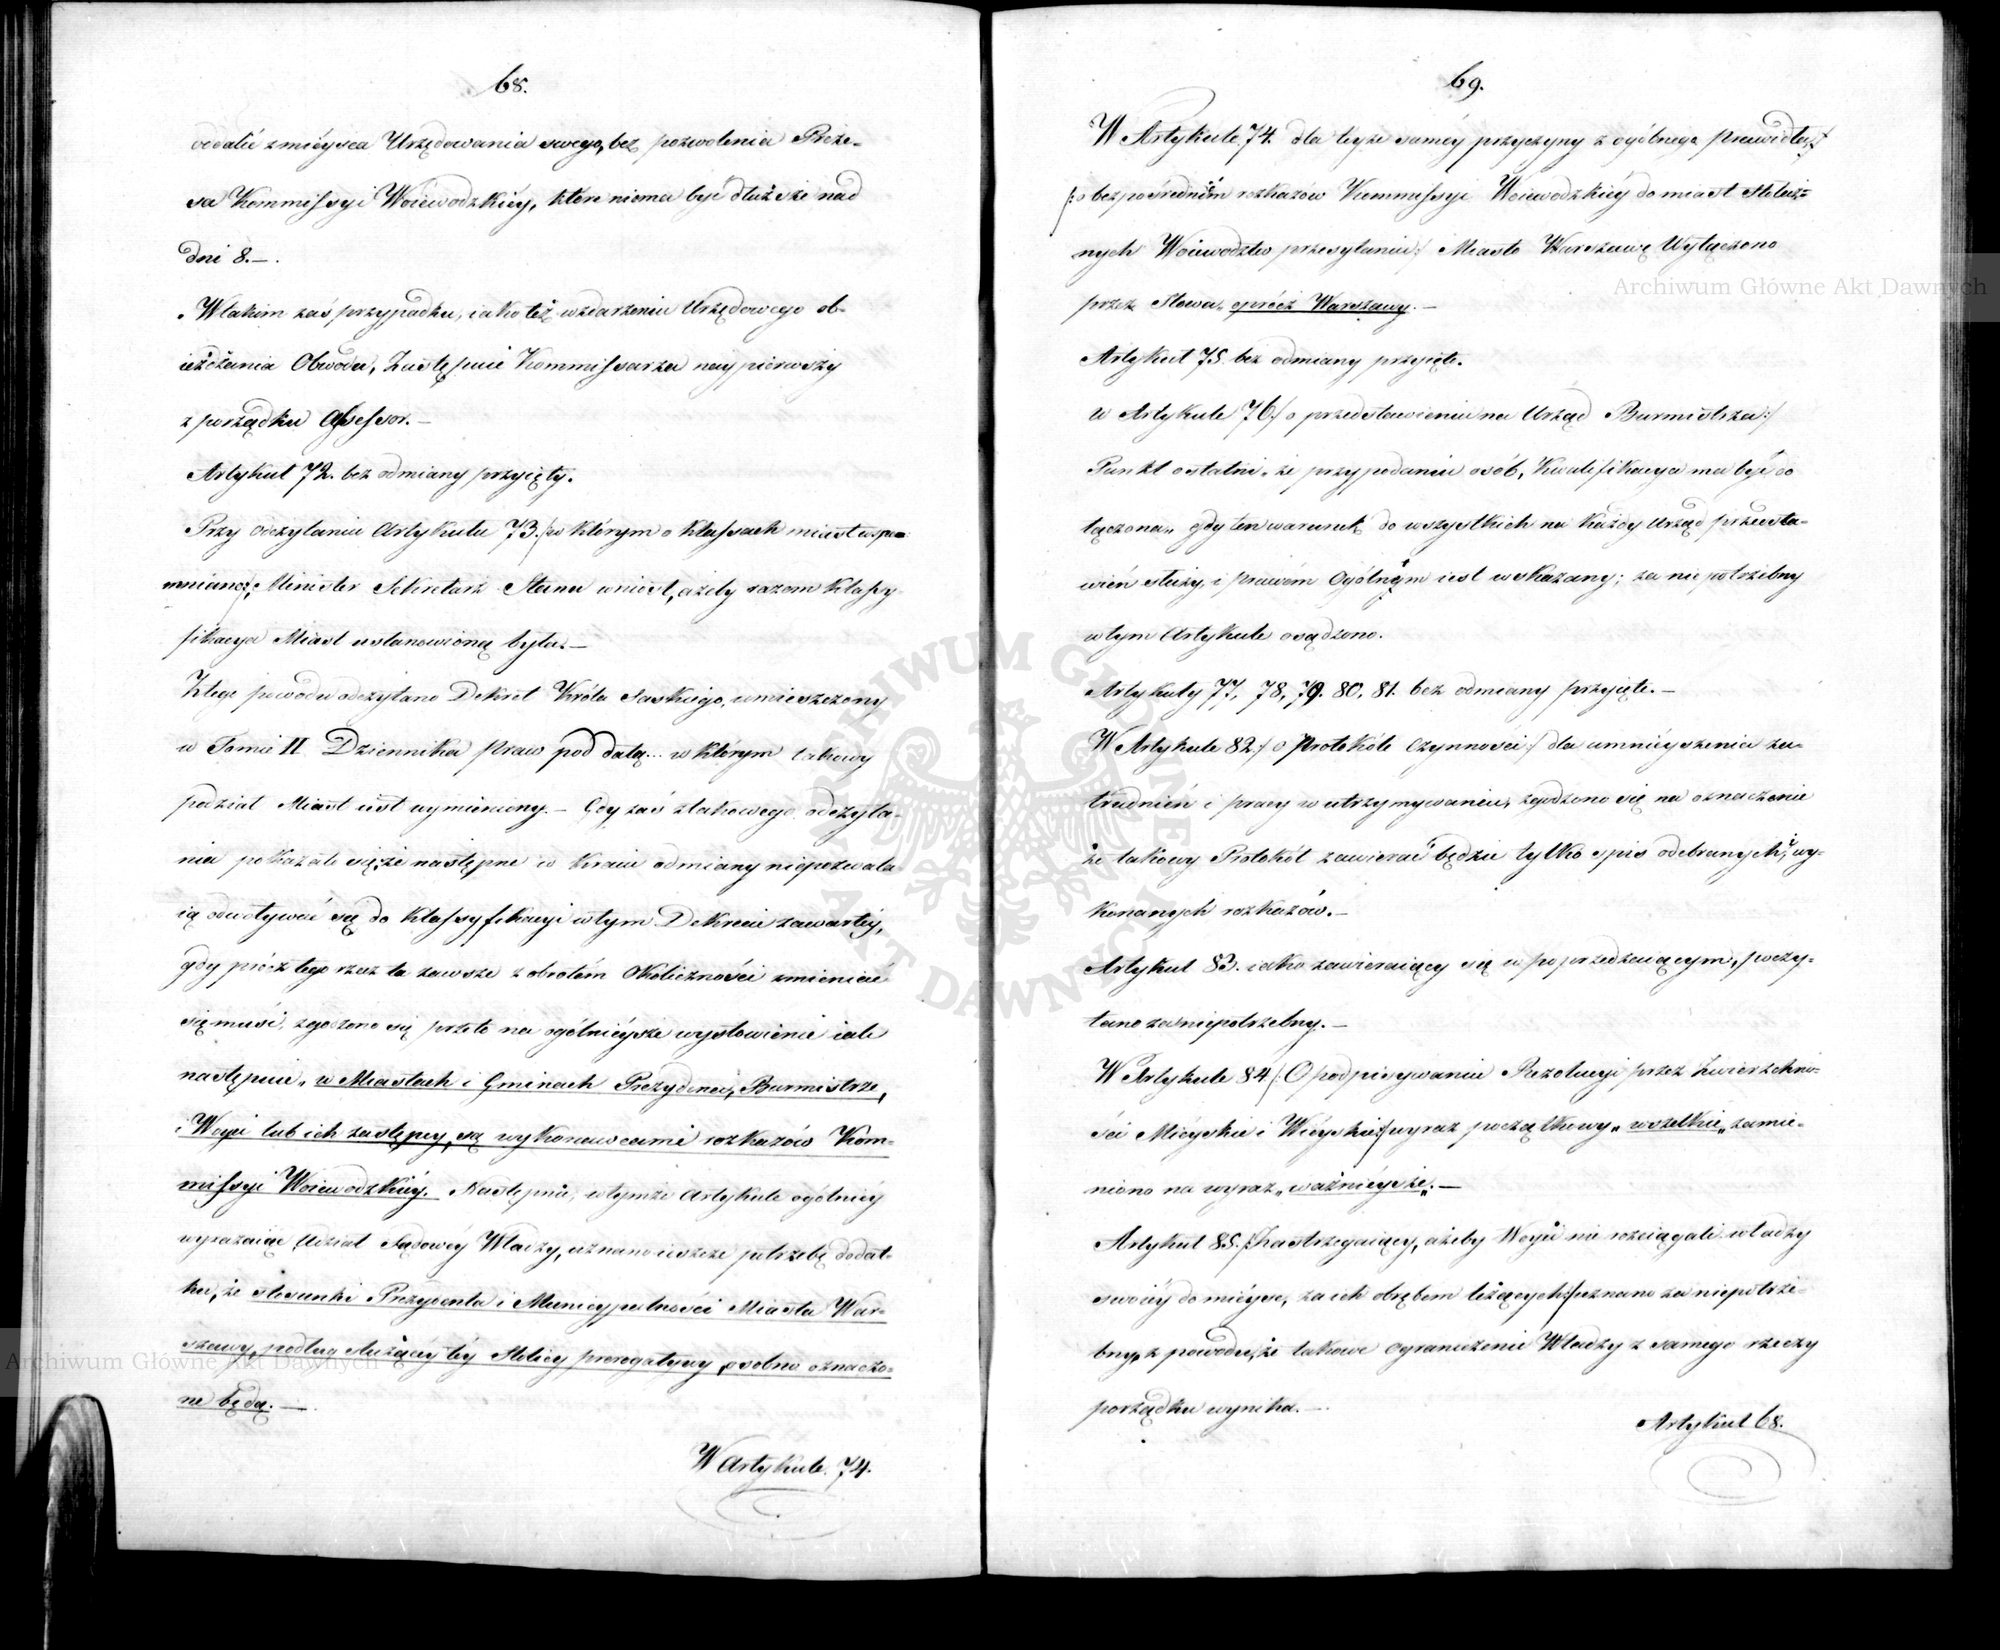 68.
oddalić z mieysca Urzędowania swego, bez pozwolenia Preze-
sa Kommissyi Woiewodzkiéy, które niema być dłuższe nad
dni 8.—.
W takim zaś przypadku, iako też w zdarzeniu Urzędowego ob-
ieżdżania Obwodu, Zastępuie Kommissarza naypierwszy
z porządku Assessor.—
Artykuł 72. bez odmiany przyięty.
Przy odczytaniu Artykułu 73. /:w którym o klassach miast wspo-
mniano:/ Minister Sekretarz Stanu wniósł, ażeby razem klassy-
fikacya Miast ustanowioną była.—
Z tego powodu odczytano Dekret Króla Saskiego, umieszczony
w Tomie II Dziennika Praw pod datą... w którym takowy
podział Miast iest wymieniony.— Gdy zaś z takowego odczyta-
nia pokazało się, że następne w Kraiu odmiany niepozwala-
ią odwoływać się do klassyfikacyi w tym Dekrecie zawartéy,
gdy prócz tego rzecz ta zawsze z obrotem okoliczności zmieniać
się musi, zgodzono się przeto na ogólnieysze wysłowienie iak
następuie „w Miastach i Gminach Prezydenci, Burmistrze,
i Woyci lub ich zastępcy, są wykonawcami rozkazów Kom-
missyi Woiewodzkiéy. Następnie, w tymże Artykule ogólniéy
wyrażaiąc Udział Sądowéy Władzy, uznano ieszcze potrzebę dodat-
ku, że stosunki Prezydenta i Municypalności Miasta War-
szawy, podług służącéy téy Stolicy prerogatywy, osobno oznaczo-
ne będą.—
W Artykule. 74.
69.
W Artykule 74. dla teyże saméy przyczyny z ogólnego prawidła,
/:o bezpośredniém rozkazów Kommissyi Woiewodzkiéy do miast Stołecz-
nych Woiewodztw przesyłaniu:/ Miasto Warszawę Wyłączono
przez Słowa „oprócz Warszawy.—
Artykuł 75 bez odmiany przyięto.
w Artykule 76:/ o przedstawieniu na Urząd Burmistrza:/
Punkt ostatni „że przy podaniu osób, kwalifikacya ma być do
łączona„ gdy ten warunek do wszystkich na każdy Urząd przedsta-
wień służy, i prawém Ogólnym iest wskazany; za niepotrzebny
w tym Artykule osądzono.
Artykuły 77, 78, 79. 80, 81. bez odmiany przyięte.—
W Artykule 82:/ o Protokóle Czynności:/ dla umnieyszenia za-
trudnień i pracy w utrzymywaniu, zgodzono się na oznaczenie
że takowy Protokół zawierać będzie tylko spis odebranych i wy-
konanych rozkazów.—
Artykuł 83. iako zawieraiący się w poprzedzaiącym, poczy-
tano za niepotrzebny.—
W Artykule 84 /:O podpisywaniu Rezolucyi przez Zwierzchno-
ści Mieyskie i Wieyskie:/ wyraz początkowy „wszelkie„ zamie-
niono na wyraz „ważnieysze„.—
Artykuł 85. /:Zastrzegaiący, ażeby Woyci nie rozciągali władzy
swoiéy do mieysc, za ich obrębem leżących:/ uznano za niepotrze-
bny, z powodu, że takowe ograniczenie Władzy z samego rzeczy
porządku wynika.—
Artykuł 68.
Archiwum Główne Akt Dawnych
Archiwum Główne Akt Dawnych
ARCHIWUM GŁÓWNE AKT DAWNYCH